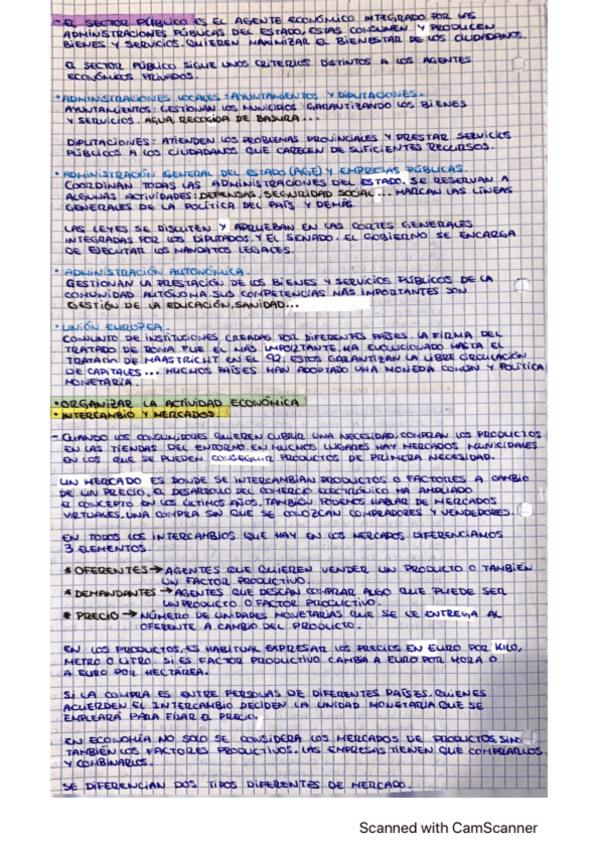 - EL SECTOR PÚBLICO ES EL AGENTE ECONÓMICO INTEGRADO POR LAS
ADMINISTRACIONES PÚBLICAS DEL ESTADO, ESTAS CONSUMEN Y PRODUCEN
BIENES Y SERVICIOS. QUIEREN MAXIMIZAR EL BIENESTAR DE LOS CIUDADANOS.
EL SECTOR PÚBLICO SIGUE UNOS CRITERIOS DISTINTOS A LOS AGENTES
ECONÓMICOS PRIVADOS.
• ADMINISTRACIONES LOCALES: AYUNTAMIENTOS Y DIPUTACIONES.
AYUNTAMIENTOS: GESTIONAN LOS MUNICIPIOS GARANTIZANDO LOS BIENES
Y SERVICIOS. AGUA, RECOGIDA DE BASURA...
DIPUTACIONES: ATIENDEN LOS PROBLEMAS PROVINCIALES Y PRESTAR SERVICIOS
PÚBLICOS A LOS CIUDADANOS QUE CARECEN DE SUFICIENTES RECURSOS.
• ADMINISTRACIÓN GENERAL DEL ESTADO (AGE) Y EMPRESAS PÚBLICAS.
COORDINAN TODAS LAS ADMINISTRACIONES DEL ESTADO. SE RESERVAN A
ALGUNAS ACTIVIDADES: DEFENSAS, SEGURIDAD SOCIAL... MARCAN LAS LÍNEAS
GENERALES DE LA POLÍTICA DEL PAÍS Y DEMÁS.
LAS LEYES SE DISCUTEN Y APRUEBAN EN LAS CORTES GENERALES
INTEGRADAS POR LOS DIPUTADOS Y EL SENADO. EL GOBIERNO SE ENCARGA
DE EJECUTAR LOS MANDATOS LEGALES.
• ADMINISTRACIÓN AUTONÓMICA.
GESTIONAN LA PRESTACIÓN DE LOS BIENES Y SERVICIOS PÚBLICOS DE LA
COMUNIDAD AUTÓNOMA. SUS COMPETENCIAS MÁS IMPORTANTES SON
GESTIÓN DE LA EDUCACIÓN, SANIDAD...
• UNIÓN EUROPEA.
CONJUNTO DE INSTITUCIONES CREADAS POR DIFERENTES PAÍSES. LA FIRMA DEL
TRATADO DE ROMA FUE EL MÁS IMPORTANTE. HA EVOLUCIONADO HASTA EL
TRATADO DE MAASTRICHT EN EL 92; ESTOS GARANTIZAN LA LIBRE CIRCULACIÓN
DE CAPITALES... MUCHOS PAÍSES HAN ADOPTADO UNA MONEDA COMÚN Y POLÍTICA
MONETARIA.
• ORGANIZAR LA ACTIVIDAD ECONÓMICA
• INTERCAMBIO Y MERCADOS.
- CUANDO LOS CONSUMIDORES QUIEREN CUBRIR UNA NECESIDAD, COMPRAN LOS PRODUCTOS
EN LAS TIENDAS DEL ENTORNO. EN MUCHOS LUGARES HAY MERCADOS MUNICIPALES
EN LOS QUE SE PUEDEN CONSEGUIR PRODUCTOS DE PRIMERA NECESIDAD.
UN MERCADO ES DONDE SE INTERCAMBIAN PRODUCTOS O FACTORES A CAMBIO
DE UN PRECIO. EL DESARROLLO DEL COMERCIO ELECTRÓNICO HA AMPLIADO
EL CONCEPTO EN LOS ÚLTIMOS AÑOS. TAMBIÉN PODEMOS HABLAR DE MERCADOS
VIRTUALES. UNA COMPRA SIN QUE SE CONOZCAN COMPRADORES Y VENDEDORES.
EN TODOS LOS INTERCAMBIOS QUE HAY EN LOS MERCADOS DIFERENCIAMOS
3 ELEMENTOS.
* OFERENTES → AGENTES QUE QUIEREN VENDER UN PRODUCTO O TAMBIÉN
UN FACTOR PRODUCTIVO.
* DEMANDANTES → AGENTES QUE DESEAN COMPRAR ALGO QUE PUEDE SER
UN PRODUCTO O FACTOR PRODUCTIVO.
* PRECIO → NÚMERO DE UNIDADES MONETARIAS QUE SE LE ENTREGA AL
OFERENTE A CAMBIO DEL PRODUCTO.
EN LOS PRODUCTOS, ES HABITUAL EXPRESAR LOS PRECIOS EN EURO POR KILO,
METRO O LITRO. SI ES FACTOR PRODUCTIVO CAMBIA A EURO POR HORA O
A EURO POR HECTÁREA.
SI LA COMPRA ES ENTRE PERSONAS DE DIFERENTES PAÍSES. QUIENES
ACUERDEN EL INTERCAMBIO DECIDEN LA UNIDAD MONETARIA QUE SE
EMPLEARÁ PARA FIJAR EL PRECIO.
EN ECONOMÍA NO SOLO SE CONSIDERA LOS MERCADOS DE PRODUCTOS, SINO
TAMBIÉN LOS FACTORES PRODUCTIVOS. LAS EMPRESAS TIENEN QUE COMPRARLOS
Y COMBINARLOS.
SE DIFERENCIAN DOS TIPOS DIFERENTES DE MERCADO.
Scanned with CamScanner